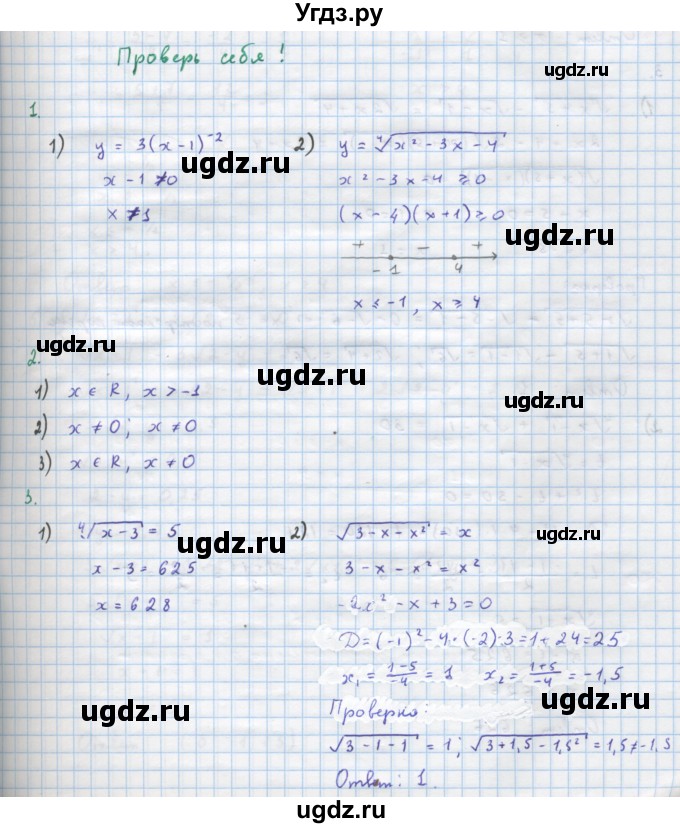 Угдз.ру
Проверь себя!
ugdz.ru
ugdz.ru
1.
1) y = 3(x - 1)⁻²
ugdz.ru
x - 1 ≠ 0
x ≠ 1
2) y = ⁴√(x² - 3x - 4)
x² - 3x - 4 ≥ 0
(x - 4)(x + 1) ≥ 0
ugdz.ru
+ - +
-1 4
x ≤ -1, x ≥ 4
ugdz.ru
2.
ugdz.ru
1) x ∈ R, x > -1
2) x ≠ 0; x ≠ 0
ugdz.ru
3) x ∈ R, x ≠ 0
3.
1) ⁴√(x - 3) = 5
ugdz.ru
x - 3 = 625
x = 628
ugdz.ru
2) √(3 - x - x²) = x
ugdz.ru
3 - x - x² = x²
-2x² - x + 3 = 0
D = (-1)² - 4·(-2)·3 = 1 + 24 = 25
x₁ = (1-5)/-4 = 1 x₂ = (1+5)/-4 = -1,5
ugdz.ru
ugdz.ru
Проверка:
√(3 - 1 - 1) = 1; √(3 + 1,5 - 1,5²) = 1,5 ≠ -1,5
Ответ: 1.
ugdz.ru
ugdz.ru